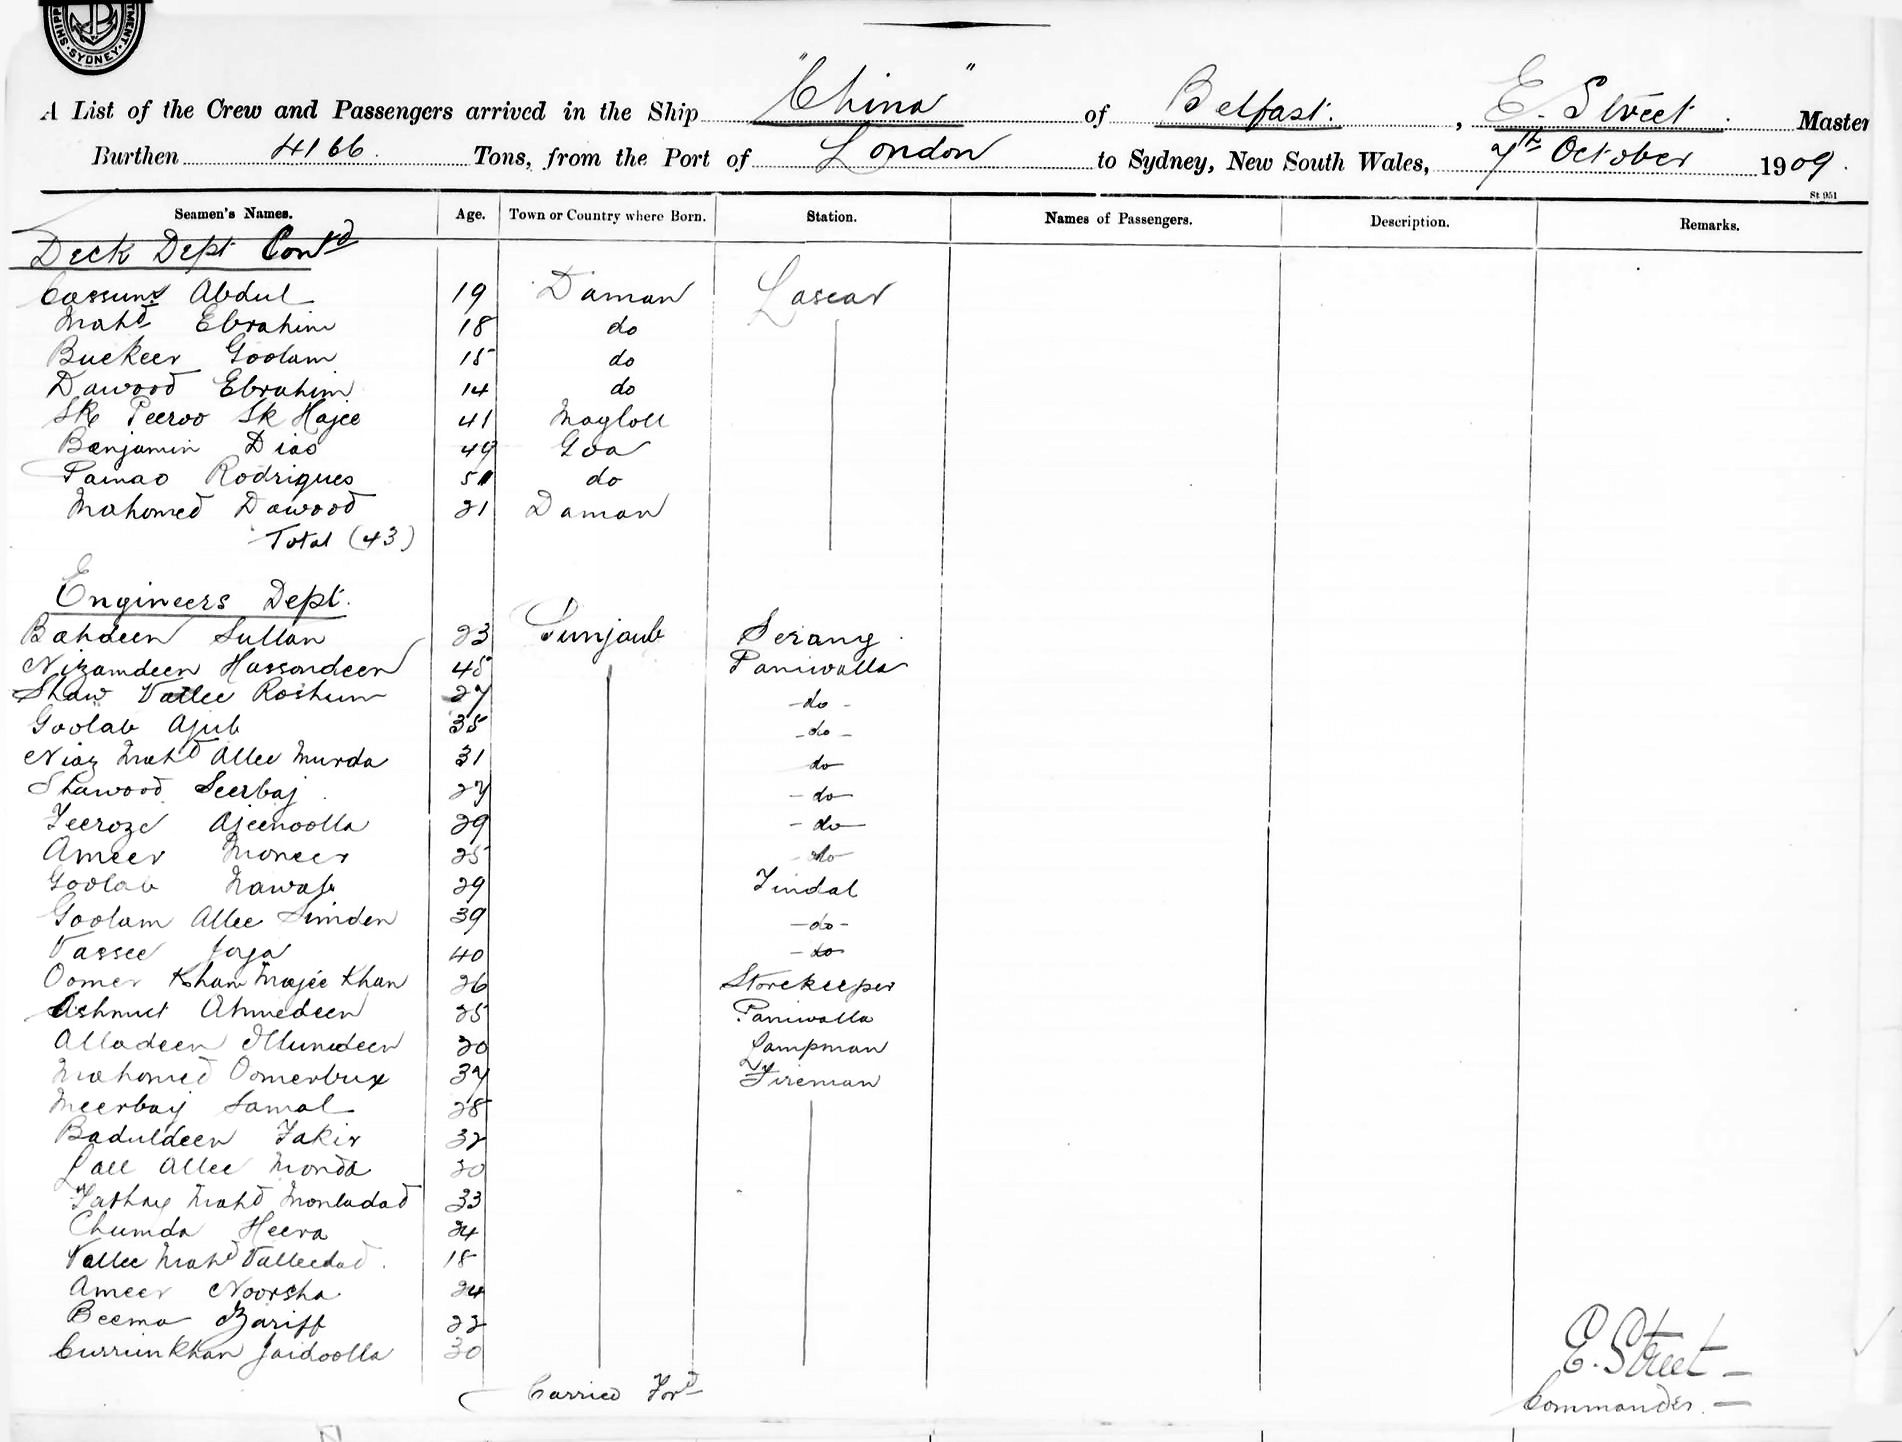 SYDNEY
A List of the Crew and Passengers arrived in the Ship "China" of Belfast, E. Street Master
Burthen 4166 Tons, from the Port of London to Sydney, New South Wales, 7th October 1909.
St 951
Seamen's Names. Age. Town or Country where Born. Station. Names of Passengers. Description. Remarks.
Deck Dept Contd
Cassum Abdul 19 Daman Lascar
Mahd Ebrahim 18 do
Buckeer Goolam 15 do
Dawood Ebrahim 14 do
Sk Peeroo Sk Hajee 41
Benjamin Dias 49 Goa
Rodrigues do
Mahomed Dawood 21 Daman
Total (43)
Engineers Dept.
Bahdeen Sultan 23 Punjaub Serang
Nizamdeen Hassondeen 45 Paniwalla
Shaw Vallee Roshun 27 - do -
Goolab Ajub 35 - do -
Niaz Mahd Allee Murda 31 do
Shawood Seerbaj 27 - do -
Feeroze Ajeenoolla 29 - do -
Ameer Moneer 25 - do -
Goolab Nawab 29 Tindal
Goolam Allee 39 - do -
Vassee 40 - do
Oomer Khan Majee Khan 26 Storekeeper
Ashmut Ahmedeen 25 Paniwalla
Alladeen 30 Lampman
Mahomed Oomerbux 37 Fireman
Meerbaj Jamal 28
Baduldeen Fakir 32
Lall Allee Monda 30
Mahd 33
Chumda Heera 24
Vallee Mahd Valleedad. 18
Ameer Noorsha 24
Beema Zariff 22
Currimkhan Jaidoolla 30
Carried Ford
E. Street -
Commander. -